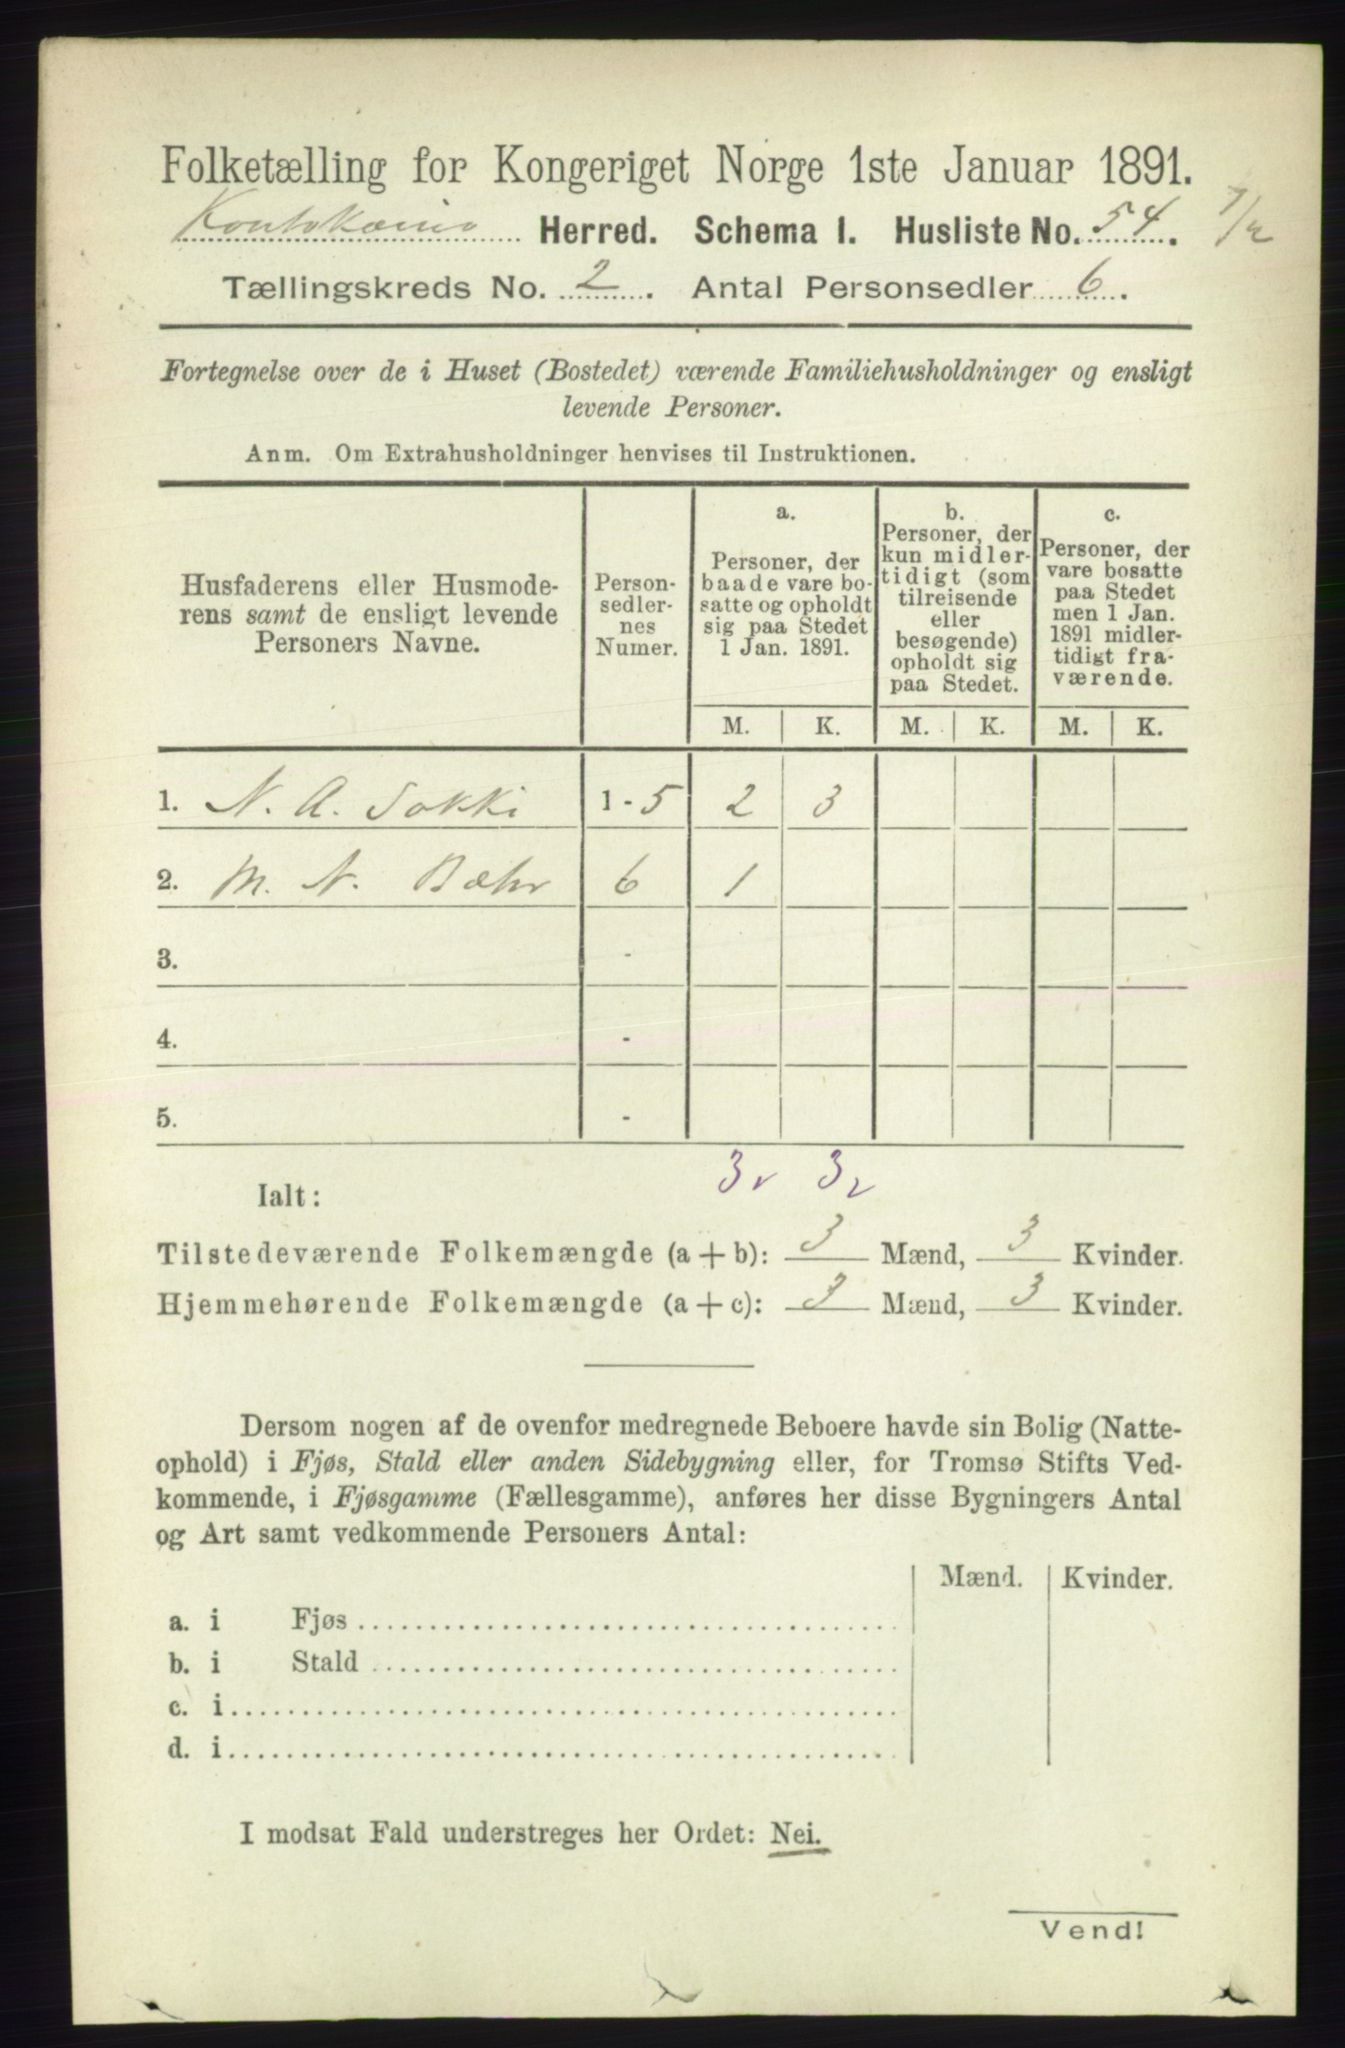 Folketælling for Kongeriget Norge 1ste Januar 1891.
Koutokæino Herred. Schema I. Husliste No. 54.
Tællingskreds No. 2. Antal Personsedler 6.
Fortegnelse over de i Huset (Bostedet) værende Familiehusholdninger og ensligt
levende Personer.
Anm. Om Extrahusholdninger henvises til Instruktionen.
Husfaderens eller Husmode-
rens samt de ensligt levende
Personers Navne.
Person-
sedler-
nes
Numer.
a.
Personer, der
baade vare bo-
satte og opholdt
sig paa Stedet
1 Jan. 1891.
b.
Personer, der
kun midler-
tidigt (som
tilreisende
eller
besøgende)
opholdt sig
paa Stedet.
c.
Personer, der
vare bosatte
paa Stedet
men 1 Jan.
1891 midler-
tidigt fra-
værende.
M. K. M. K. M. K.
1. N. A. Sokki 1 - 5 2 3
2. M. N. Bæhr 6 1
3. -
4. -
5. -
3 3
Ialt:
Tilstedeværende Folkemængde (a + b): 3 Mænd, 3 Kvinder.
Hjemmehørende Folkemængde (a + c): 3 Mænd, 3 Kvinder.
Dersom nogen af de ovenfor medregnede Beboere havde sin Bolig (Natte-
ophold) i Fjøs, Stald eller anden Sidebygning eller, for Tromsø Stifts Ved-
kommende, i Fjøsgamme (Fællesgamme), anføres her disse Bygningers Antal
og Art samt vedkommende Personers Antal:
Mænd. Kvinder.
a. i Fjøs
b. i Stald
c. i
d. i
I modsat Fald understreges her Ordet: Nei.
Vend!